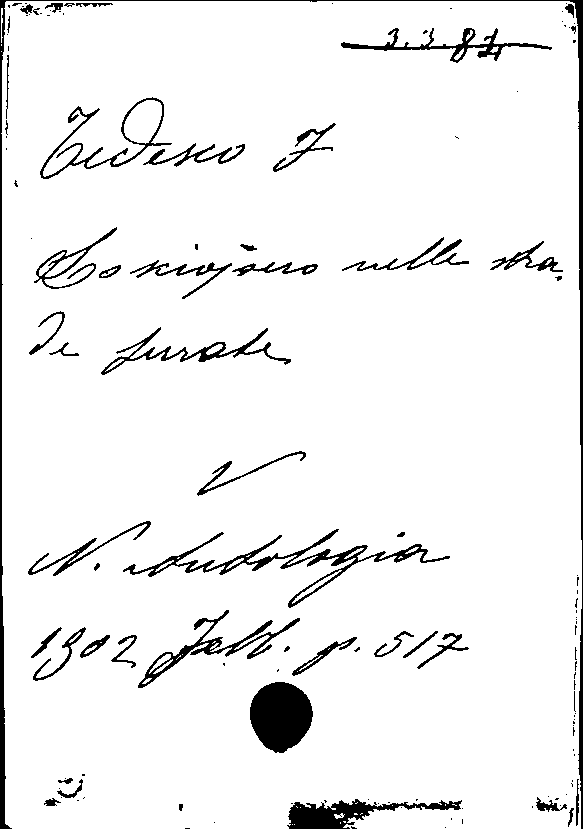 3.3.84
Tedesco F
Lo sciopero nelle stra-
de ferrate
V
N. Antologia
1902 Febb. p. 517